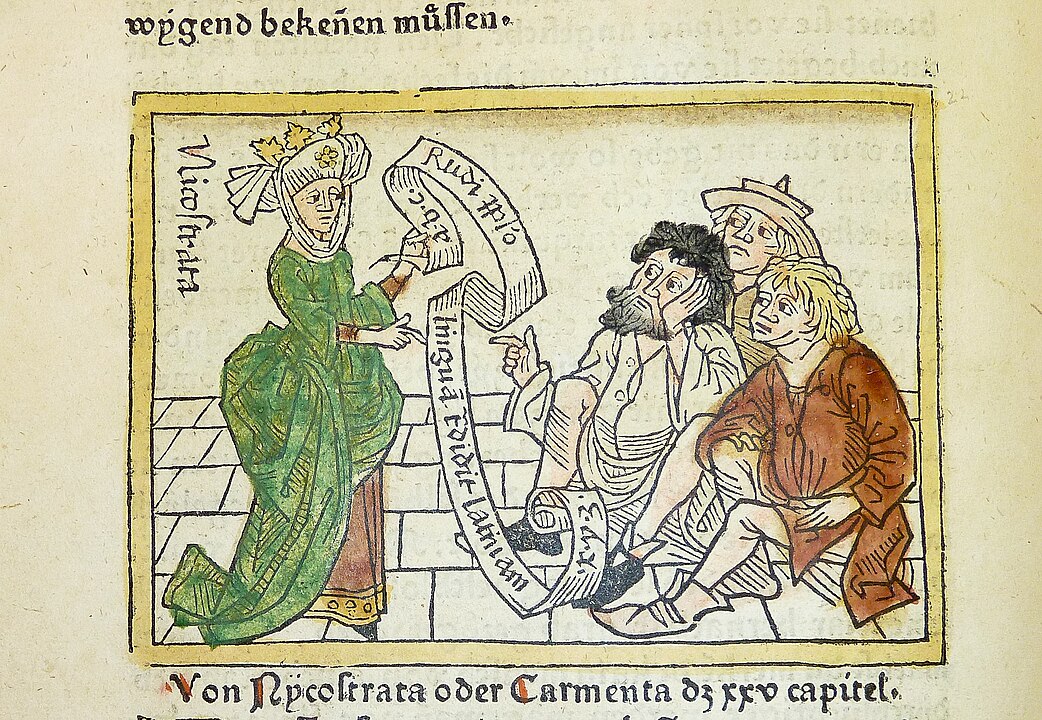 wÿgend bekeñen müssen.
22
Nicoſtrata
Rudi
a.b.c.
linguã edidit latinam
x.y.z.
Von Nÿcoſtrata oder Carmenta dz xxv capitel.